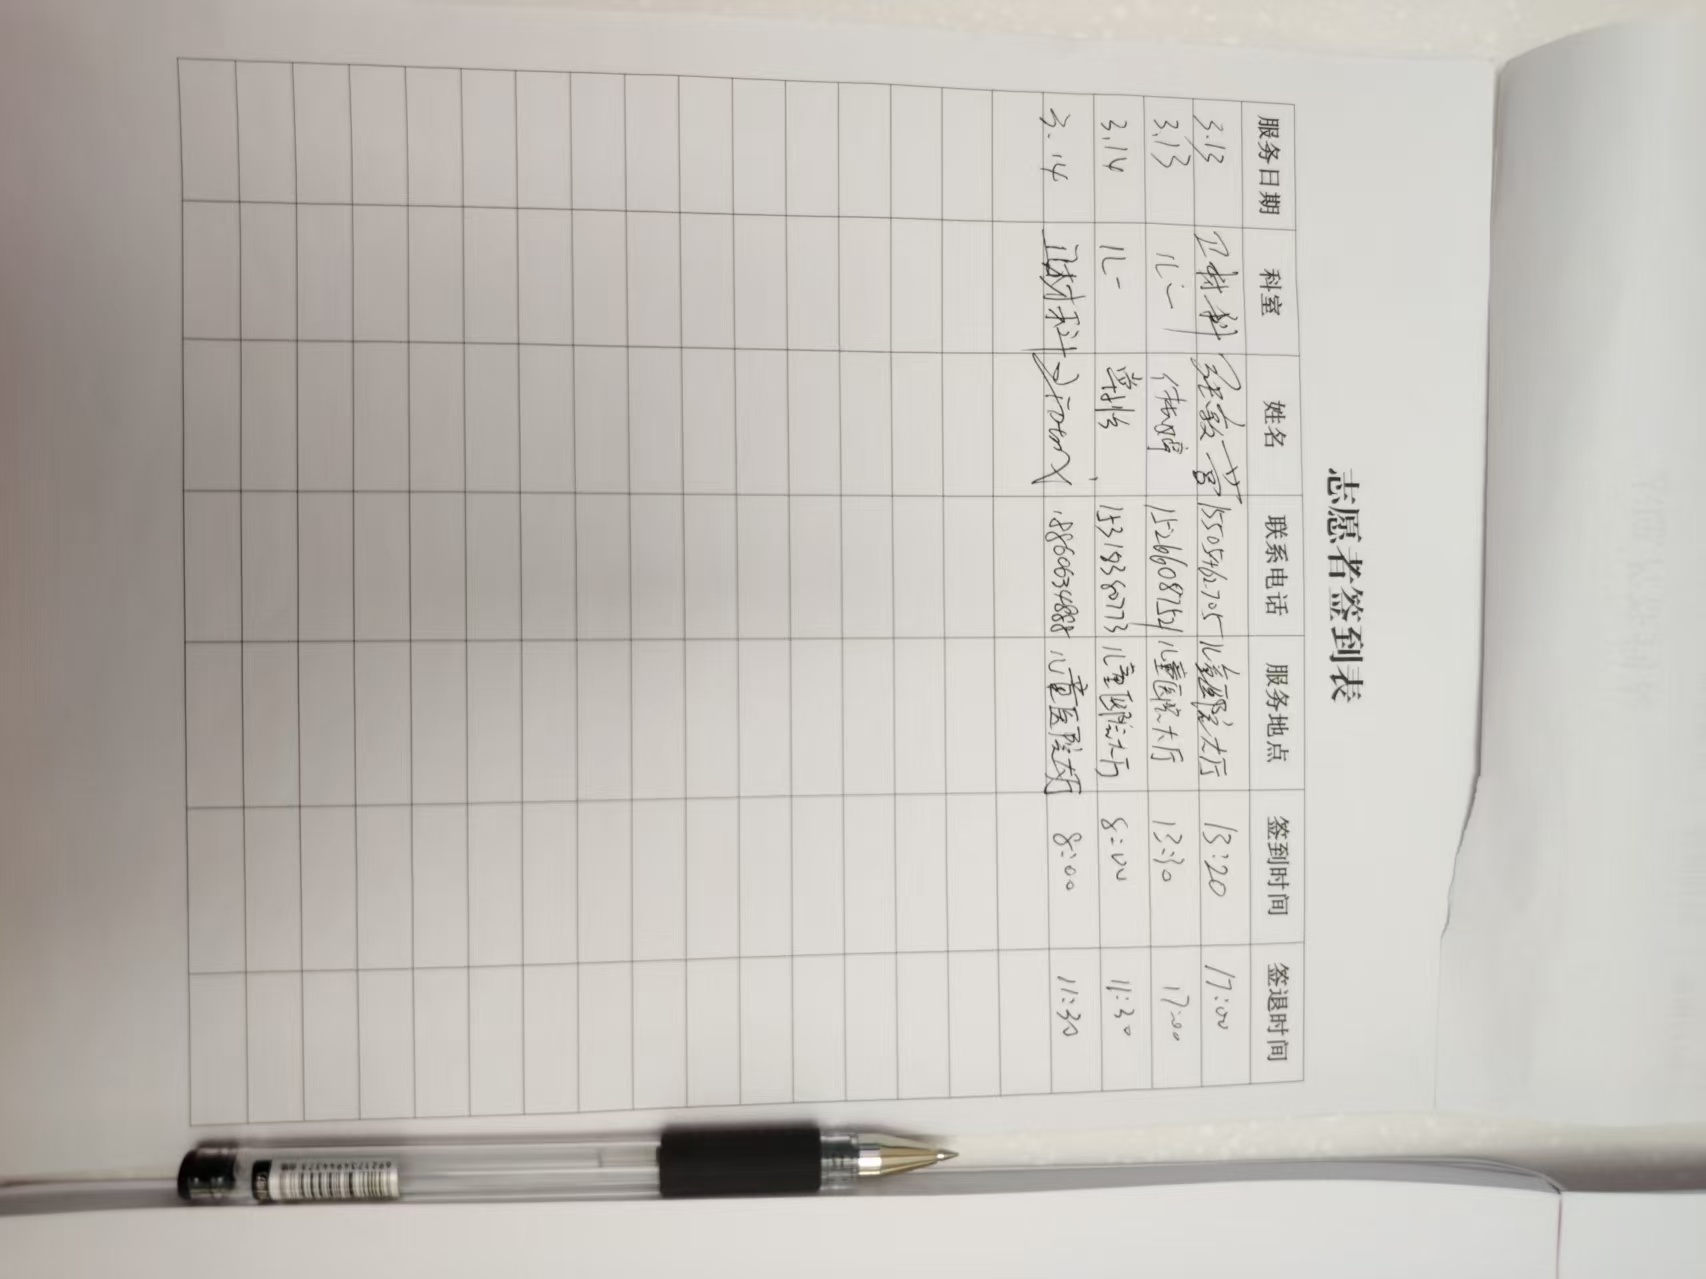 志愿者签到表
服务日期 科室 姓名 联系电话 服务地点 签到时间 签退时间
3.13 卫材科 15505462705 儿童医院大厅 13:20 17:00
3.13 儿一 15266087521 儿童医院大厅 13:30 17:00
3.14 儿一 15319380773 儿童医院大厅 8:00 11:30
3.14 卫材科 18860634888 儿童医院大厅 8:00 11:30